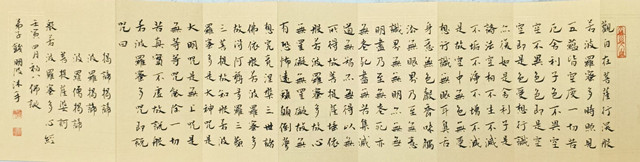 觀自在菩薩行深般
若波羅蜜多時照見
五蘊皆空度一切苦
厄舍利子色不異空
空不異色色即是空
空即是色受想行識
亦復如是舍利子是
諸法空相不生不滅
不垢不淨不增不減
是故空中無色無受
想行識無眼耳鼻舌
身意無色聲香味觸
法無眼界乃至無意
識界無無明亦無無
明盡乃至無老死亦
無老死盡無苦集滅
道無智亦無得以無
所得故菩提薩埵依
般若波羅蜜多故心
無罣礙無罣礙故無
有恐怖遠離顛倒夢
想究竟涅槃三世諸
佛依般若波羅蜜多
故得阿耨多羅三藐
三菩提故知般若波
羅蜜多是大神咒是
大明咒是無上咒是
無等等咒能除一切
苦真實不虛故說般
若波羅蜜多咒即說
咒曰
揭諦揭諦
波羅揭諦
波羅僧揭諦
菩提薩婆訶
般若波羅蜜多心經
壬寅四月初八佛誕
弟子錢明波沐手